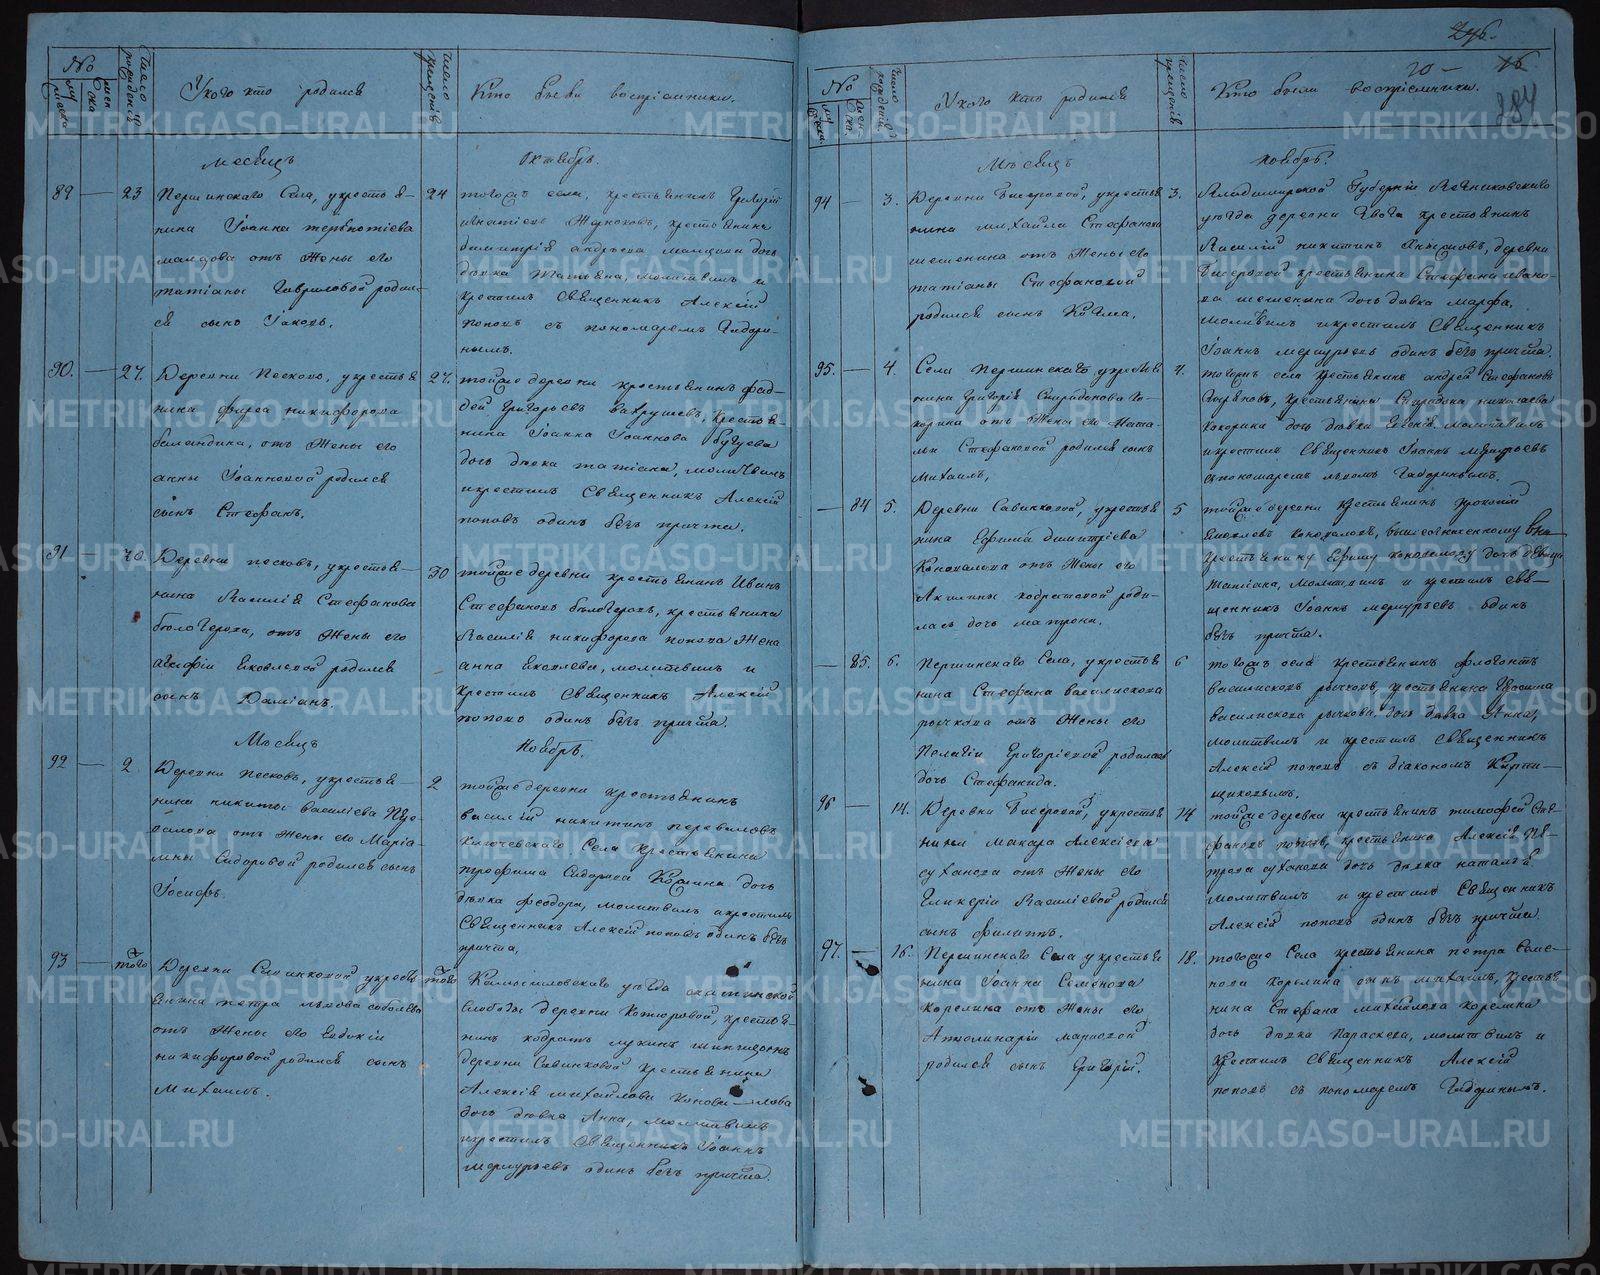 246.
20 —
16
284
№
муска
женска
Число рожденія
У кого кто родился
Число крещенія
Кто были воспріемники.
Месяцъ
Октябрь.
89 — 23
Першинскаго Села, у крестья-
нина Іоанна
отъ жены его
татіаны Гавриловой родил-
ся сынъ Іаковъ.
24
тогожъ села, крестьянинъ Григорій
крестьянина
димитрія андреева дочь
дѣвка татьяна, молитвилъ и
крестилъ Священникъ Алексій
поповъ съ пономаремъ Гидори-
нымъ.
90. — 27.
Деревни Песковъ, у крестья
нина фирса никифорова
отъ жены его
анны Іоанновой родился
сынъ Стефанъ.
27.
тойже деревни крестьянинъ фад-
дей Григорьевъ вахрушевъ, крестья
нина Іоанна Іоаннова бугуева
дочь дѣвка татіана, молитвилъ
и крестилъ Священникъ Алексій
поповъ одинъ безъ причта.
91 — 30.
Деревни песковъ, у крестья-
нина Василія Стефанова
отъ жены его
Яковлевой родился
сынъ Даміанъ.
30
тойже деревни крестьянинъ Иванъ
Стефановъ крестьянина
Василія никифорова попова жена
анна Яковлева, молитвилъ и
крестилъ Священникъ Алексій
поповъ одинъ безъ причта.
Мѣсяцъ
Ноябрь.
92 — 2
Деревни песковъ, у крестья-
нина никиты василіева
отъ жены его Марі-
Сидоровой родился сынъ
Іосифъ.
2
тойже деревни крестьянинъ
василій никитинъ переваловъ
Села Крестьянина
трофима Сидорова дочь
дѣвка феодора, молитвилъ и крестилъ
Священникъ Алексій поповъ одинъ безъ
причта.
93 — того
Деревни Савинковой у кресть
янина петра соболева
отъ жены его Евдокіи
никифоровой родился сынъ
Михаилъ.
того
Камышловскаго уѣзда
слободы деревни крестья-
нинъ
деревни Савинковой крестьянина
Алексія михайлова Коновалова
дочь дѣвка Анна, молитвилъ
и крестилъ Священникъ Іоаннъ
меркурьевъ одинъ безъ причта.
№
муска.
женска.
Число рожденій.
У кого кто родился
Число крещенія
Кто были воспріемники.
Мѣсяцъ
ноябрь.
94 — 3.
Деревни Бисеровой, у крестья
нина михаила Стефанова
шешенина отъ жены его
татіаны Стефановой
родился сынъ Козма.
3.
Владимірской Губерніи Вязниковскаго
уѣзда деревни крестьянинъ
Василій никитинъ деревни
Бисеровой крестьянина Стефана ивано-
ва шешенина дочь дѣвка марфа,
молитвилъ и крестилъ Священникъ
Іоаннъ меркурьевъ одинъ безъ причта.
95. — 4.
Села першинскаго, у крестья
нина григорія Спиридонова Ко-
корина отъ жены его Ната-
ліи Стефановой родился сынъ
михаилъ.
4.
тогожъ села крестьянинъ андрей Стефановъ
крестьянина Спиридона николаева
кокорина дочь дѣвка Евгенія, молитвилъ
и крестилъ Священникъ Іоаннъ меркурьевъ
съ пономаремъ Гидоринымъ.
— 84 5.
Деревни Савинковой, у крестья
нина Ефима димитріева
Коновалова отъ жены его
Акилины кодратовой роди-
лась дочь матрона.
5
тойже деревни крестьянинъ прокопій
Яковлевъ Коноваловъ, вышеозначенному
крестьянину Ефиму коновалову дочь дѣвица
татіана, молитвилъ и крестилъ свя-
щенникъ Іоаннъ меркурьевъ одинъ
безъ причта.
— 85. 6.
Першинскаго Села, у крестья
нина Стефана василискова
рычкова отъ жены его
Пелагіи Григоріевой родилась
дочь Стефанида.
6
тогожъ села крестьянинъ флегонтъ
василисковъ рычковъ, крестьянина Герасима
василискова рычкова, дочь дѣвка Анна,
молитвилъ и крестилъ Священникъ
Алексій поповъ съ діакономъ Кирпи-
щиковымъ.
96 — 14.
Деревни Бисеровой, у крестья
нина макара Алексіева
суханова отъ жены его
Гликеріи Василіевой родился
сынъ филиппъ.
14
тойже деревни крестьянинъ тимофей Сте-
фановъ поповъ, крестьянина Алексія Пе-
трова суханова дочь дѣвка наталья
молитвилъ и крестилъ Священникъ
Алексій поповъ одинъ безъ причта.
97. — 16.
Першинскаго Села у крестья
нина Іоанна Семенова
корелина отъ жены его
Аполинаріи марковой
родился сынъ Григорій.
18.
тогоже Села крестьянина петра Семе-
нова Корелина сынъ михаилъ, крестья
нина Стефана михайлова корелина
дочь дѣвка Параскева, молитвилъ и
крестилъ Священникъ Алексій
поповъ съ пономаремъ Гидоринымъ.
METRIKI.GASO-URAL.RU